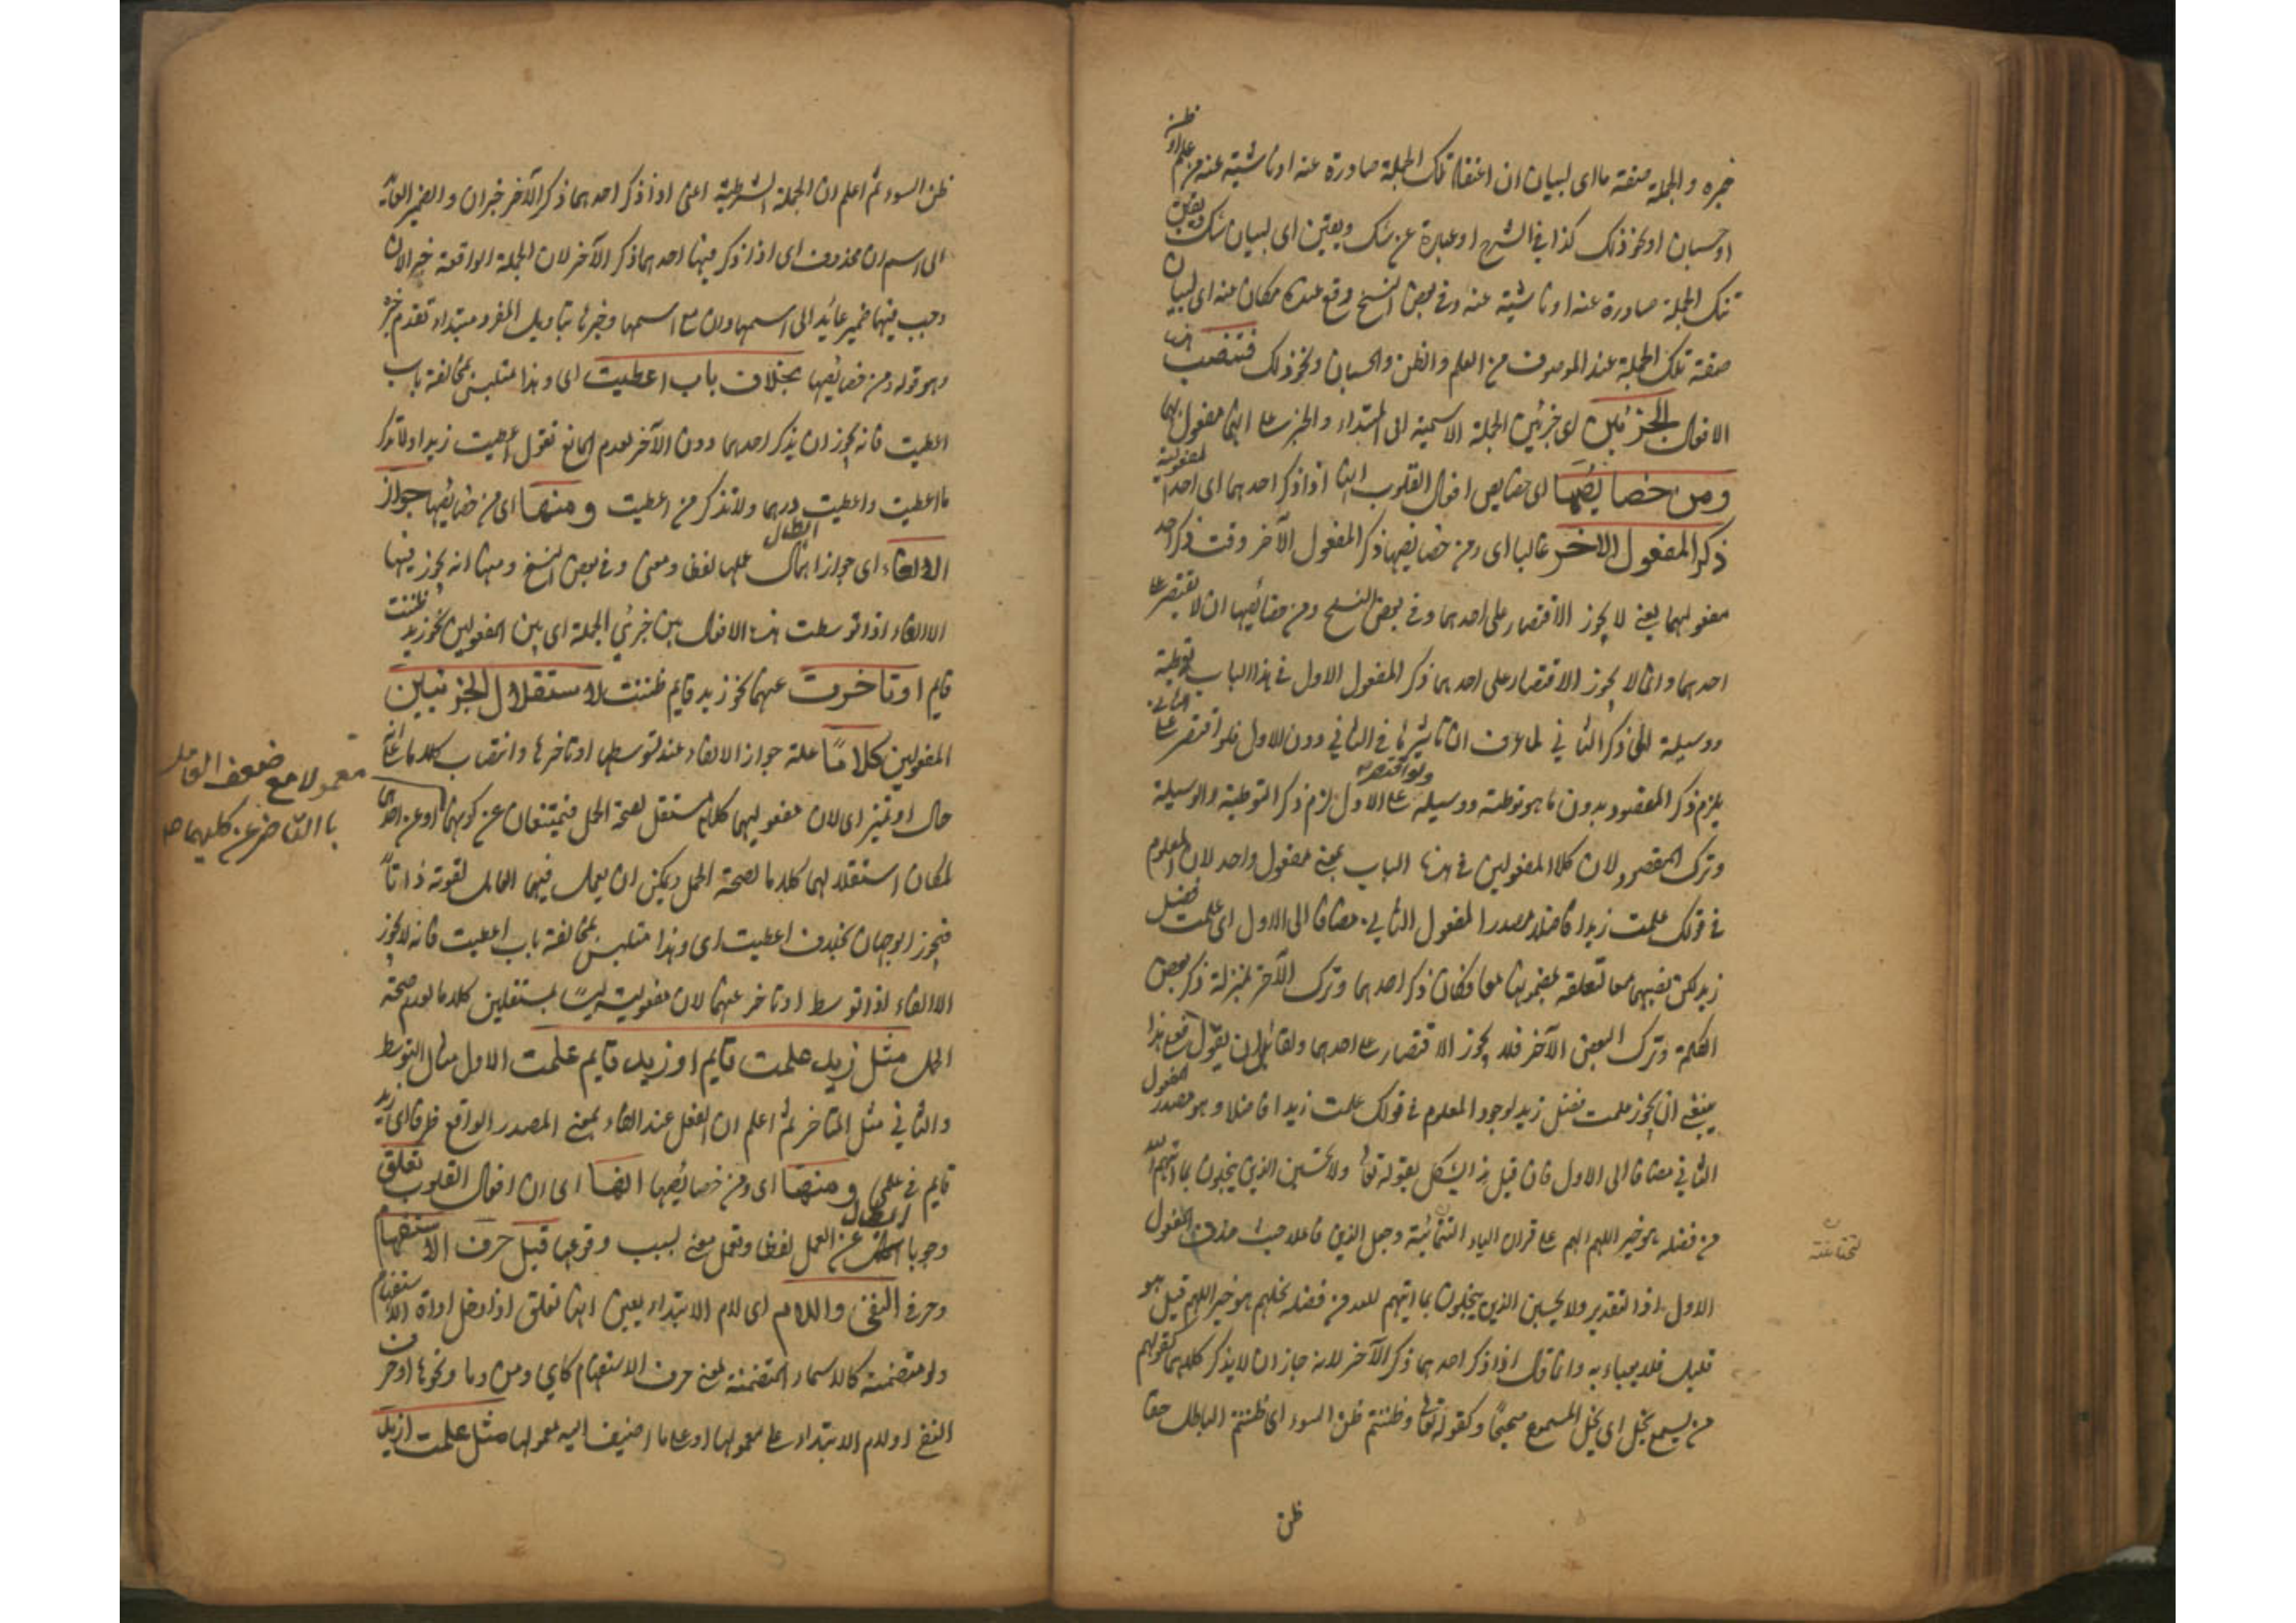 خبره والجملة صفة ما اى لبيان ان اعتقاد تلك الجملة صادرة عنه او ناشية عنه من علم او ظن
او حسبان او نحو ذلك كذا فى الشرح او عبارة عن شك ويقين اى لبيان شك ويقين
تلك الجملة صادرة عنه او ناشية عنه وفى بعض النسخ وقع عنده مكان عنه اى لبيان
صفة تلك الجملة عند الموصوف من العلم والظن والحسبان ونحو ذلك فتنصب
الافعال الجزئين اى جزئين الجملة الاسمية اى المبتداء والخبر على انهما مفعول بهما
ومن خصايصها اى خصايص افعال القلوب انها اذا ذكر احدهما اى احدا لمفعولية
ذكر المفعول الاخر غالبا اى ومن خصايصها ذكر المفعول الآخر وقت ذكر احد
مفعوليهما يعنى لا يجوز الاقتصار على احدهما وفى بعض النسخ ومن خصائصها ان لا يقتصر على
احدهما وانما لا يجوز الاقتصار على احدهما ذكر المفعول الاول فى هذا الباب توطية
ووسيلة الى ذكر الثانى لما عرف ان تاثيرها فى الثانى دون الاول فلو اقتصر على الثانى
يلزم ذكر المقصود بدون ما هو توطئة ووسيلة ولو اقتصر على الاول لزم ذكر التوطية والوسيلة
وترك المقصود ولان كلا المفعولين فى هذا الباب بمعنى مفعول واحد لان المعلوم
فى قولك علمت زيدا فاضلا مصدر المفعول الثانى مضافا الى الاول اى علمت فضل
زيد لكن نصبهما معا لتعلقه بمضمونها معا فكان ذكر احدهما وترك الآخر بمنزلة ذكر بعض
الكلمة وترك البعض الآخر فلا يجوز الاقتصار على احدهما ولقائل ان يقول فعلى هذا
ينبغى ان يجوز علمت فضل زيد لوجود المعلوم فى قولك علمت زيدا فاضلا وهو مصدر المفعول
الثانى مضافا الى الاول فان قيل هذا يشكل بقوله تعالى ولا يحسبن الذين يبخلون بما آتيهم الله
من فضله هو خيرا لهم على قراءة الياء التحتانية وجعل الذين فاعلا حيث حذف المفعول
الاول اذ التقدير ولا يحسبن الذين يبخلون بما اتيهم الله من فضله بخلهم هو خيرا لهم قيل هو
قليل فلا يعباء به وانما قال اذا ذكر احدهما ذكر الآخر لانه جاز ان لا يذكر كلاهما كقولهم
من يسمع يخل اى يخل المسموع صحيحا وكقوله تعالى وظننتم ظن السوء اى ظننتم الباطل حقا
ظن
تحتانية
ظن السوء ثم اعلم ان الجملة الشرطية اعنى اذا ذكر احدهما ذكر الآخر خبر ان والضمير العائد
الى اسم ان محذوف اى اذا ذكر فيها احدهما ذكر الآخر لان الجملة الواقعة خبر الان
وجب فيها ضمير عائد الى اسمها وان مع اسمها وخبرها بتاويل المفرد مبتداء تقدم خبره
وهو قوله ومن خصائصها بخلاف باب اعطيت اى وهذا متلبس بمخالفة باب
اعطيت فانه يجوز ان يذكر احدهما دون الآخر لعدم المانع تقول اعطيت زيدا ولا تذكر
ما اعطيت واعطيت درهما ولا تذكر من اعطيت ومنها اى من خصايصها جواز
الالغاء اى جواز ابطال عملها لفظا ومعنى وفى بعض النسخ ومنها انه يجوز فيها
الالغاء اذا توسطت هذه الافعال بين جزئى الجملة اى بين المفعولين نحو زيد ظننت
قايم او تاخرت عنهما نحو زيد قايم ظننت لاستقلال الجزئين
المفعولين كلاما علة جواز الالغاء عند توسطها او تاخرها وانتصاب كلاما على انه
حال او تميز اى لان مفعوليهما كلام مستقل لصحة الحمل فيمتنعان عن كونهما
معمولا مع ضعف العامل
بالتاخر عن كليهما
او عن احدهما
لمكان استقلالهما كلاما لصحة الحمل ويمكن ان يعمل فيهما العامل لقوته ذاتا
فيجوز الوجهان بخلاف اعطيت اى وهذا متلبس بمخالفة باب اعطيت فانه لا يجوز
الالغاء اذا توسط او تاخر عنهما لان مفعوليه ليسا بمستقلين كلاما لعدم صحة
الحمل مثل زيد علمت قايم او زيد قايم علمت الاول مثال التوسط
والثانى مثل المتاخر ثم اعلم ان الفعل عند الالغاء بمعنى المصدر الواقع ظرفا اى زيد
قايم فى علمى ومنها اى ومن خصائصها انها اى ان افعال القلوب تعلق
وجوبا ابطال عن العمل لفظا وتعمل معنى بسبب وقوعها قبل حرف الاستفهام
وحرف النفى واللام اى لام الابتداء يعنى انها تعلق اذا دخل اداة الاستفهام
ولو متضمنة كالاسماء المتضمنة لمعنى حرف الاستفهام كاى ومن وما ونحوها او حرف
النفى او لام الابتداء على معمولها او على ما اضيف اليه معمولها مثل علمت ازيد